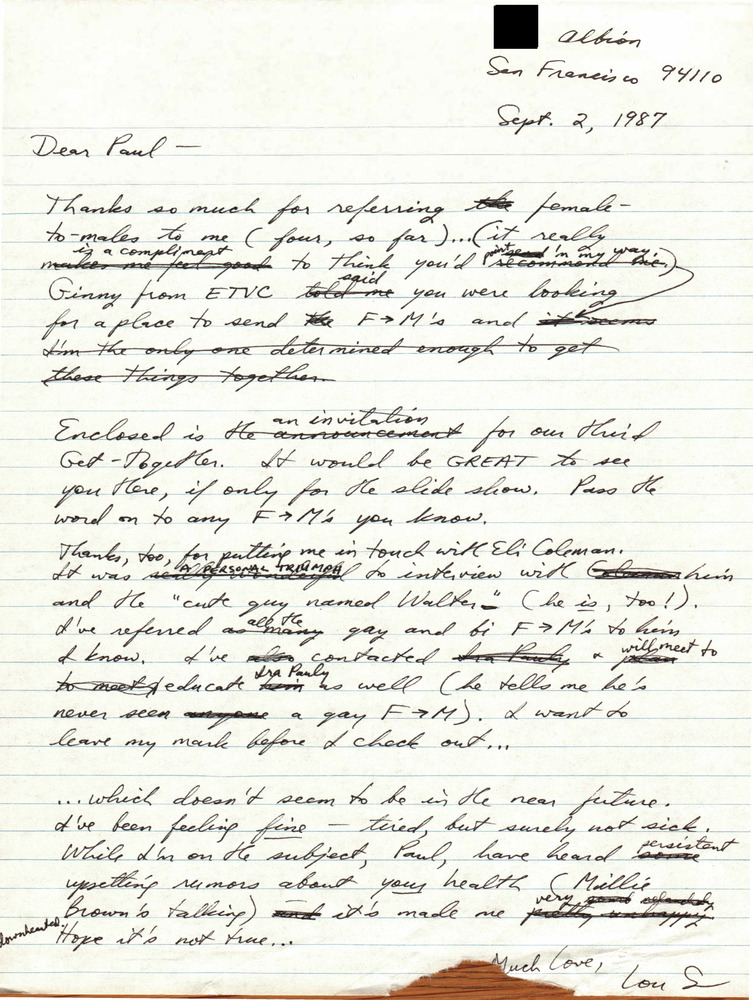 Albion
San Francisco 94110
Sept. 2, 1987
Dear Paul —
Thanks so much for referring the female-
to-males to me (four, so far)... (it really
is a compliment
makes me feel good to think you'd point 'em my way.
send
recommend me.)
said
Ginny from ETVC told me you were looking
for a place to send the F→M's and it seems
I'm the only one determined enough to get
these things together.
an invitation
Enclosed is the announcement for our third
Get-Together. It would be GREAT to see
you there, if only for the slide show. Pass the
word on to any F→M's you know.
Thanks, too, for putting me in touch with Eli Coleman.
A PERSONAL TRIUMPH
It was really wonderful to interview with Coleman him
and the "cute guy named Walter" (he is, too!).
all the
I've referred as many gay and bi F→M's to him
I know. I've also contacted Ira Pauly & will meet to
plan
Ira Pauly
to meet/educate him as well (he tells me he's
never seen anyone a gay F→M). I want to
leave my mark before I check out...
...which doesn't seem to be in the near future.
I've been feeling fine — tired, but surely not sick.
persistent
While I'm on the subject, Paul, have heard some
upsetting rumors about your health (Millie
Brown's talking) and it's made me very
pretty unhappy.
downhearted.
Hope it's not true...
Much Love,
Lou S